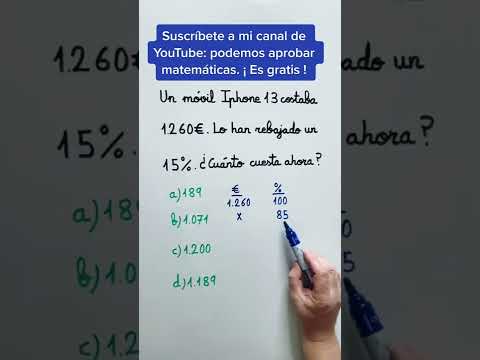 Suscríbete a mi canal de
YouTube: podemos aprobar
matemáticas. ¡ Es gratis !
Un móvil Iphone 13 costaba
1.260€. Lo han rebajado un
15%. ¿Cuánto cuesta ahora?
a) 189
b) 1.071
c) 1.200
d) 1.189
€ %
1.260 100
x 85